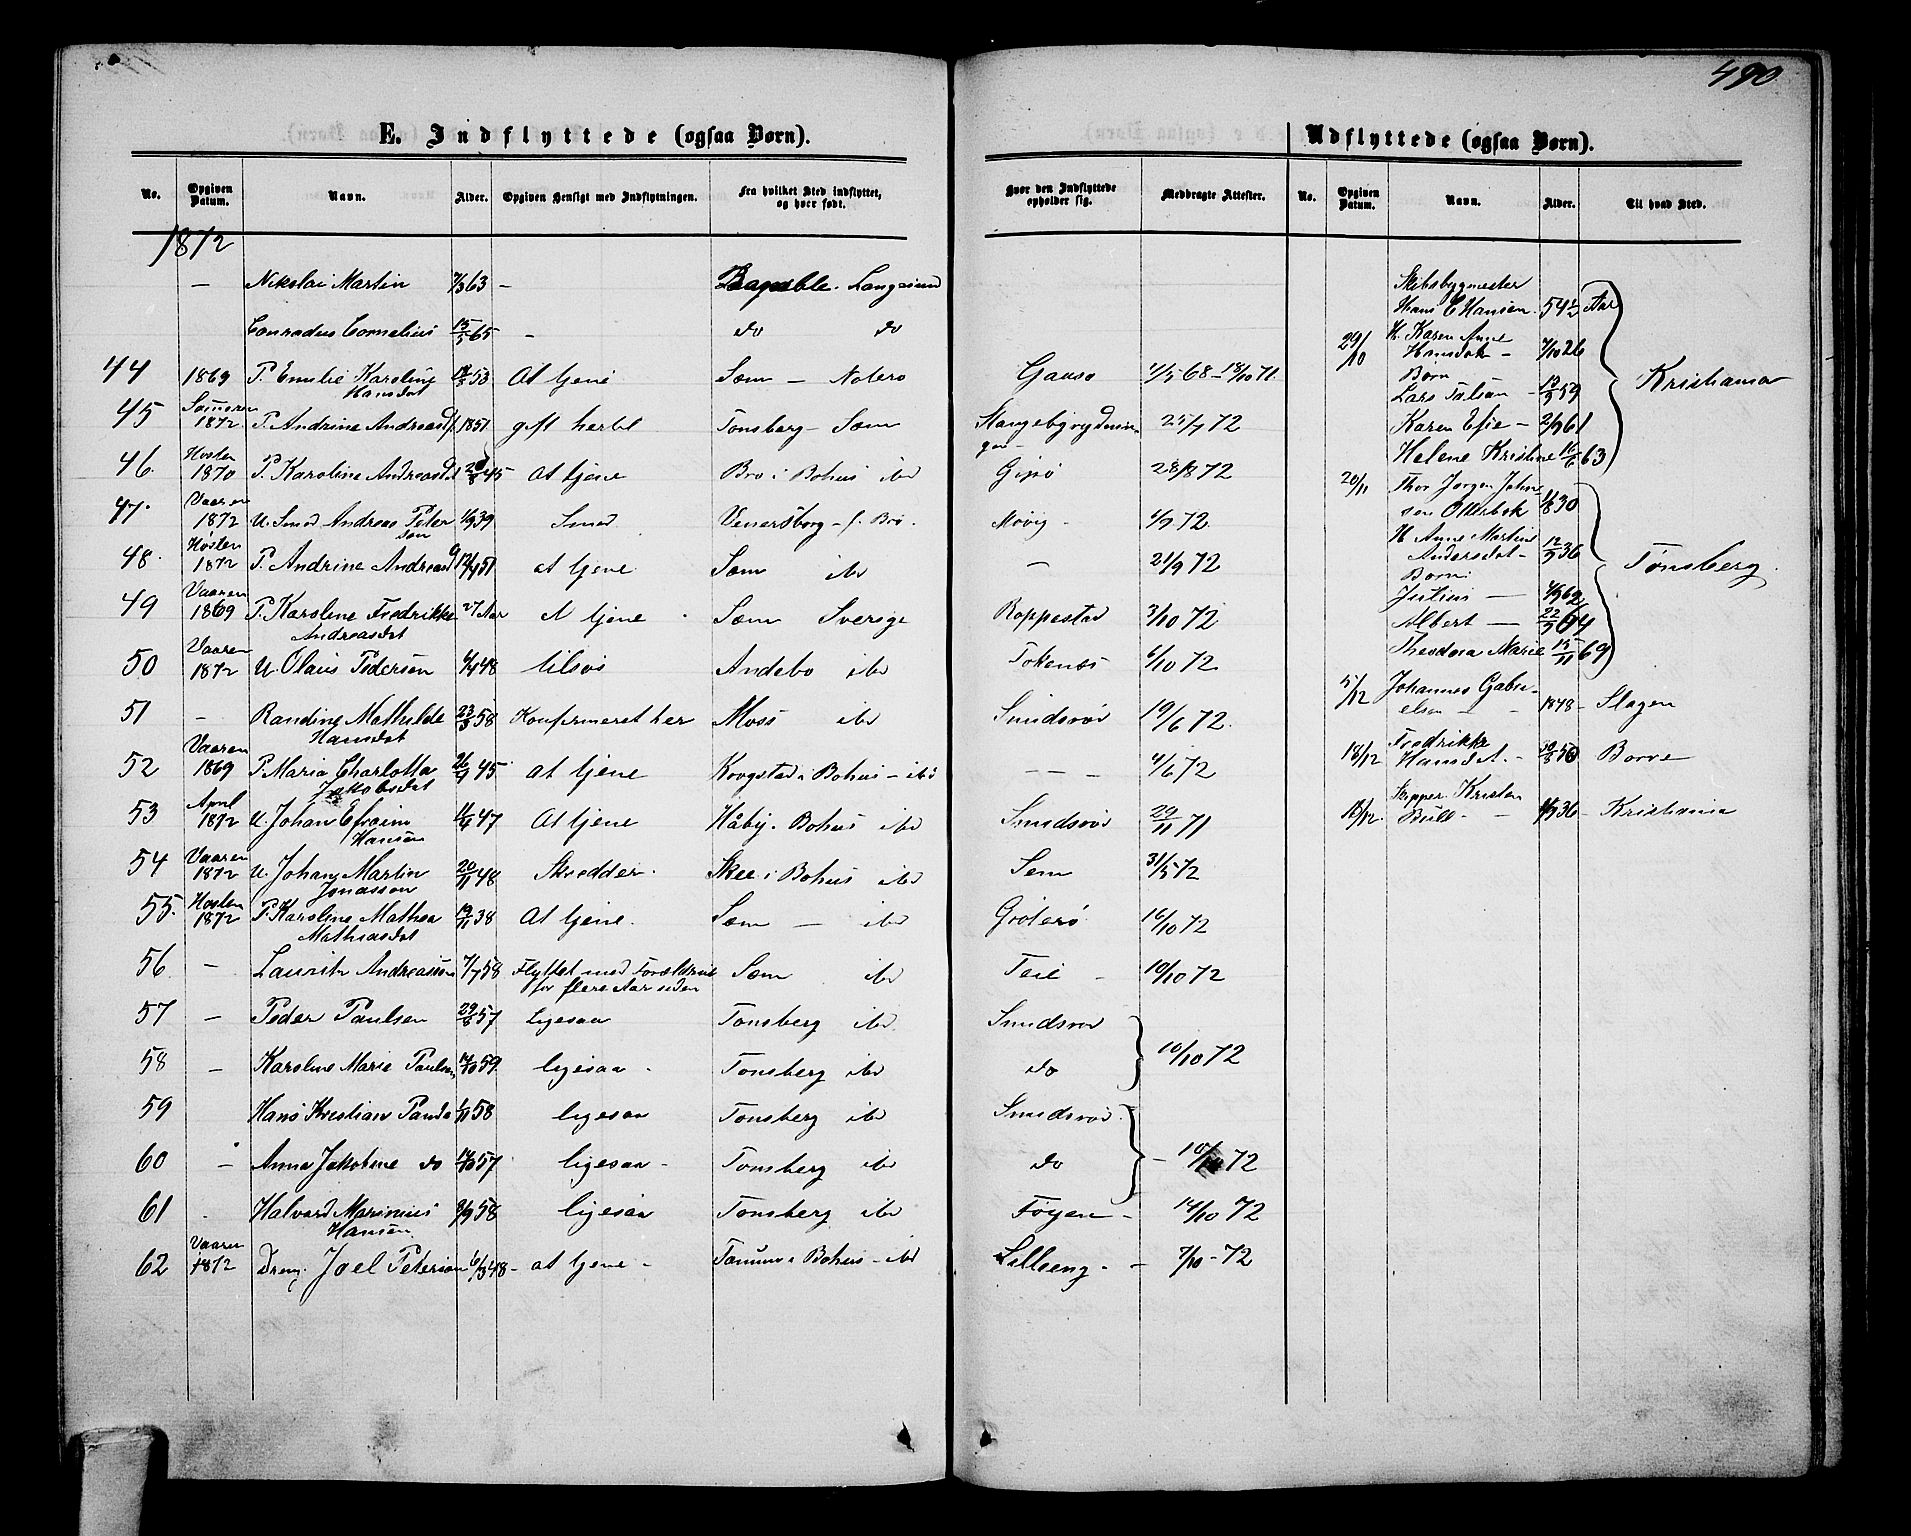 490
E. Indflyttede (ogsaa Børn).
No. Opgiven Datum. Navn. Alder. Opgiven Hensigt med Indflytningen. Fra hvilket Sted indflyttet, og hvor født. Hvor den Indflyttede opholder sig. Medbragte Attester.
1872
— Nikolai Martin 63 — Bamble - Langesund
Conradus Cornelius 15/5 65 — do do
44 1869 P. Emilie Karoline Hansdat 53 At tjene Sæm — Notero Gausø 4/5 68 - 18/10 71.
45 Sommeren 1872 P. Andrine Andreasd f. 1851 gift hertil Tonsberg - Sæm 25/7 72
46. Høsten 1870 P. Karoline Andreasdt 45 At tjene Bro i Bohus ibd Gipø 28/8 72
47. Vaaren 1872 U. Smed Andreas Peterson 39 Smed. Venersborg - f. Bro. Møvig - 72
48. Høsten 1872 P. Andrine Andreasd 51 at tjene Sæm ibd — 21/9 72
49 Vaaren 1869 P. Karoline Fredrikke Andreasdat 27 Aar At tjene Sæm Sverige Roppestad 3/10 72
50 Vaaren 1872 U. Olaus Pedersen 4/4 48 tilsøs Andebo ibd Tokenæs 6/10 72
51 - Randine Mathilde Hansdat 23/3 58 Konfirmeret her Moss ibd Smidsrød 19/6 72.
52 Vaaren 1869 P. Maria Charlotta Jakobsdat 45 at tjene Krogstad i Bohus - ibd — — - 4/6 72
53 April 1872 U. Johan Efraim Hansen 47 At tjene Håby i Bohus ibd Smidsrød 29/11 71
54 Vaaren 1872 U. Johan Martin Jonasson 20/11 48 Skredder. Skee i Bohus ibd Sem 31/5 72
55. Høsten 1872 P. Karoline Mathea Mathiasdat 19/11 38 At tjene. Sæm — ibd Grøterø 16/10 72
56 - Lauritz Andreassen 7/7 58 Flyttet med Forældrene for flere Aar siden Sæm ibd Teie - 10/10 72
57 - Peder Paulsen 29/8 57 Ligesaa Tonsberg ibd Smidsrød
58 - Karoline Marie Paulsen 59 ligesaa - Tonsberg ibd do 10/10 72
59 Hans Kristian 58 ligesaa Tonsberg ibd Smidsrød
60 - Anna Jakobine do 57 ligesaa - Tonsberg ibd do - 72
61 Halvard Marinius Hansen 58 ligesaa Tonsberg ibd Føyen - 14/10 72
62 Vaaren 1872 Dreng. Joel Peterson 48 - at tjene - Tanum i Bohus - ibd Lilleeng - - 7/10 - 72
Udflyttede (ogsaa Børn).
No. Opgiven Datum. Navn. Alder. Til hvad Sted.
29/10 Skibsbygmester
Hans C Hansen. 54 1/2 Aar
H. Karen Anne
Hansdat - 7/10 26 Kristiania
Børn
Lars - 59
Karen Efie - 61
Helene Kristine 63
20/11 Thor Jørgen John-
sen Otterbek 30
H. Anne Martine
Andersdat - 12/9 36
Børn: Tønsberg.
Julius — 62
Albert — 64
Theodora Marie 15/11 69
5/12 Johannes Gabri-
elsen - - 1848 - Slagen
18/12 Fredrikke
Hansdat. - 50 Borre
18/12. Skipper. Kristen
Bull - - 36 - Kristiania